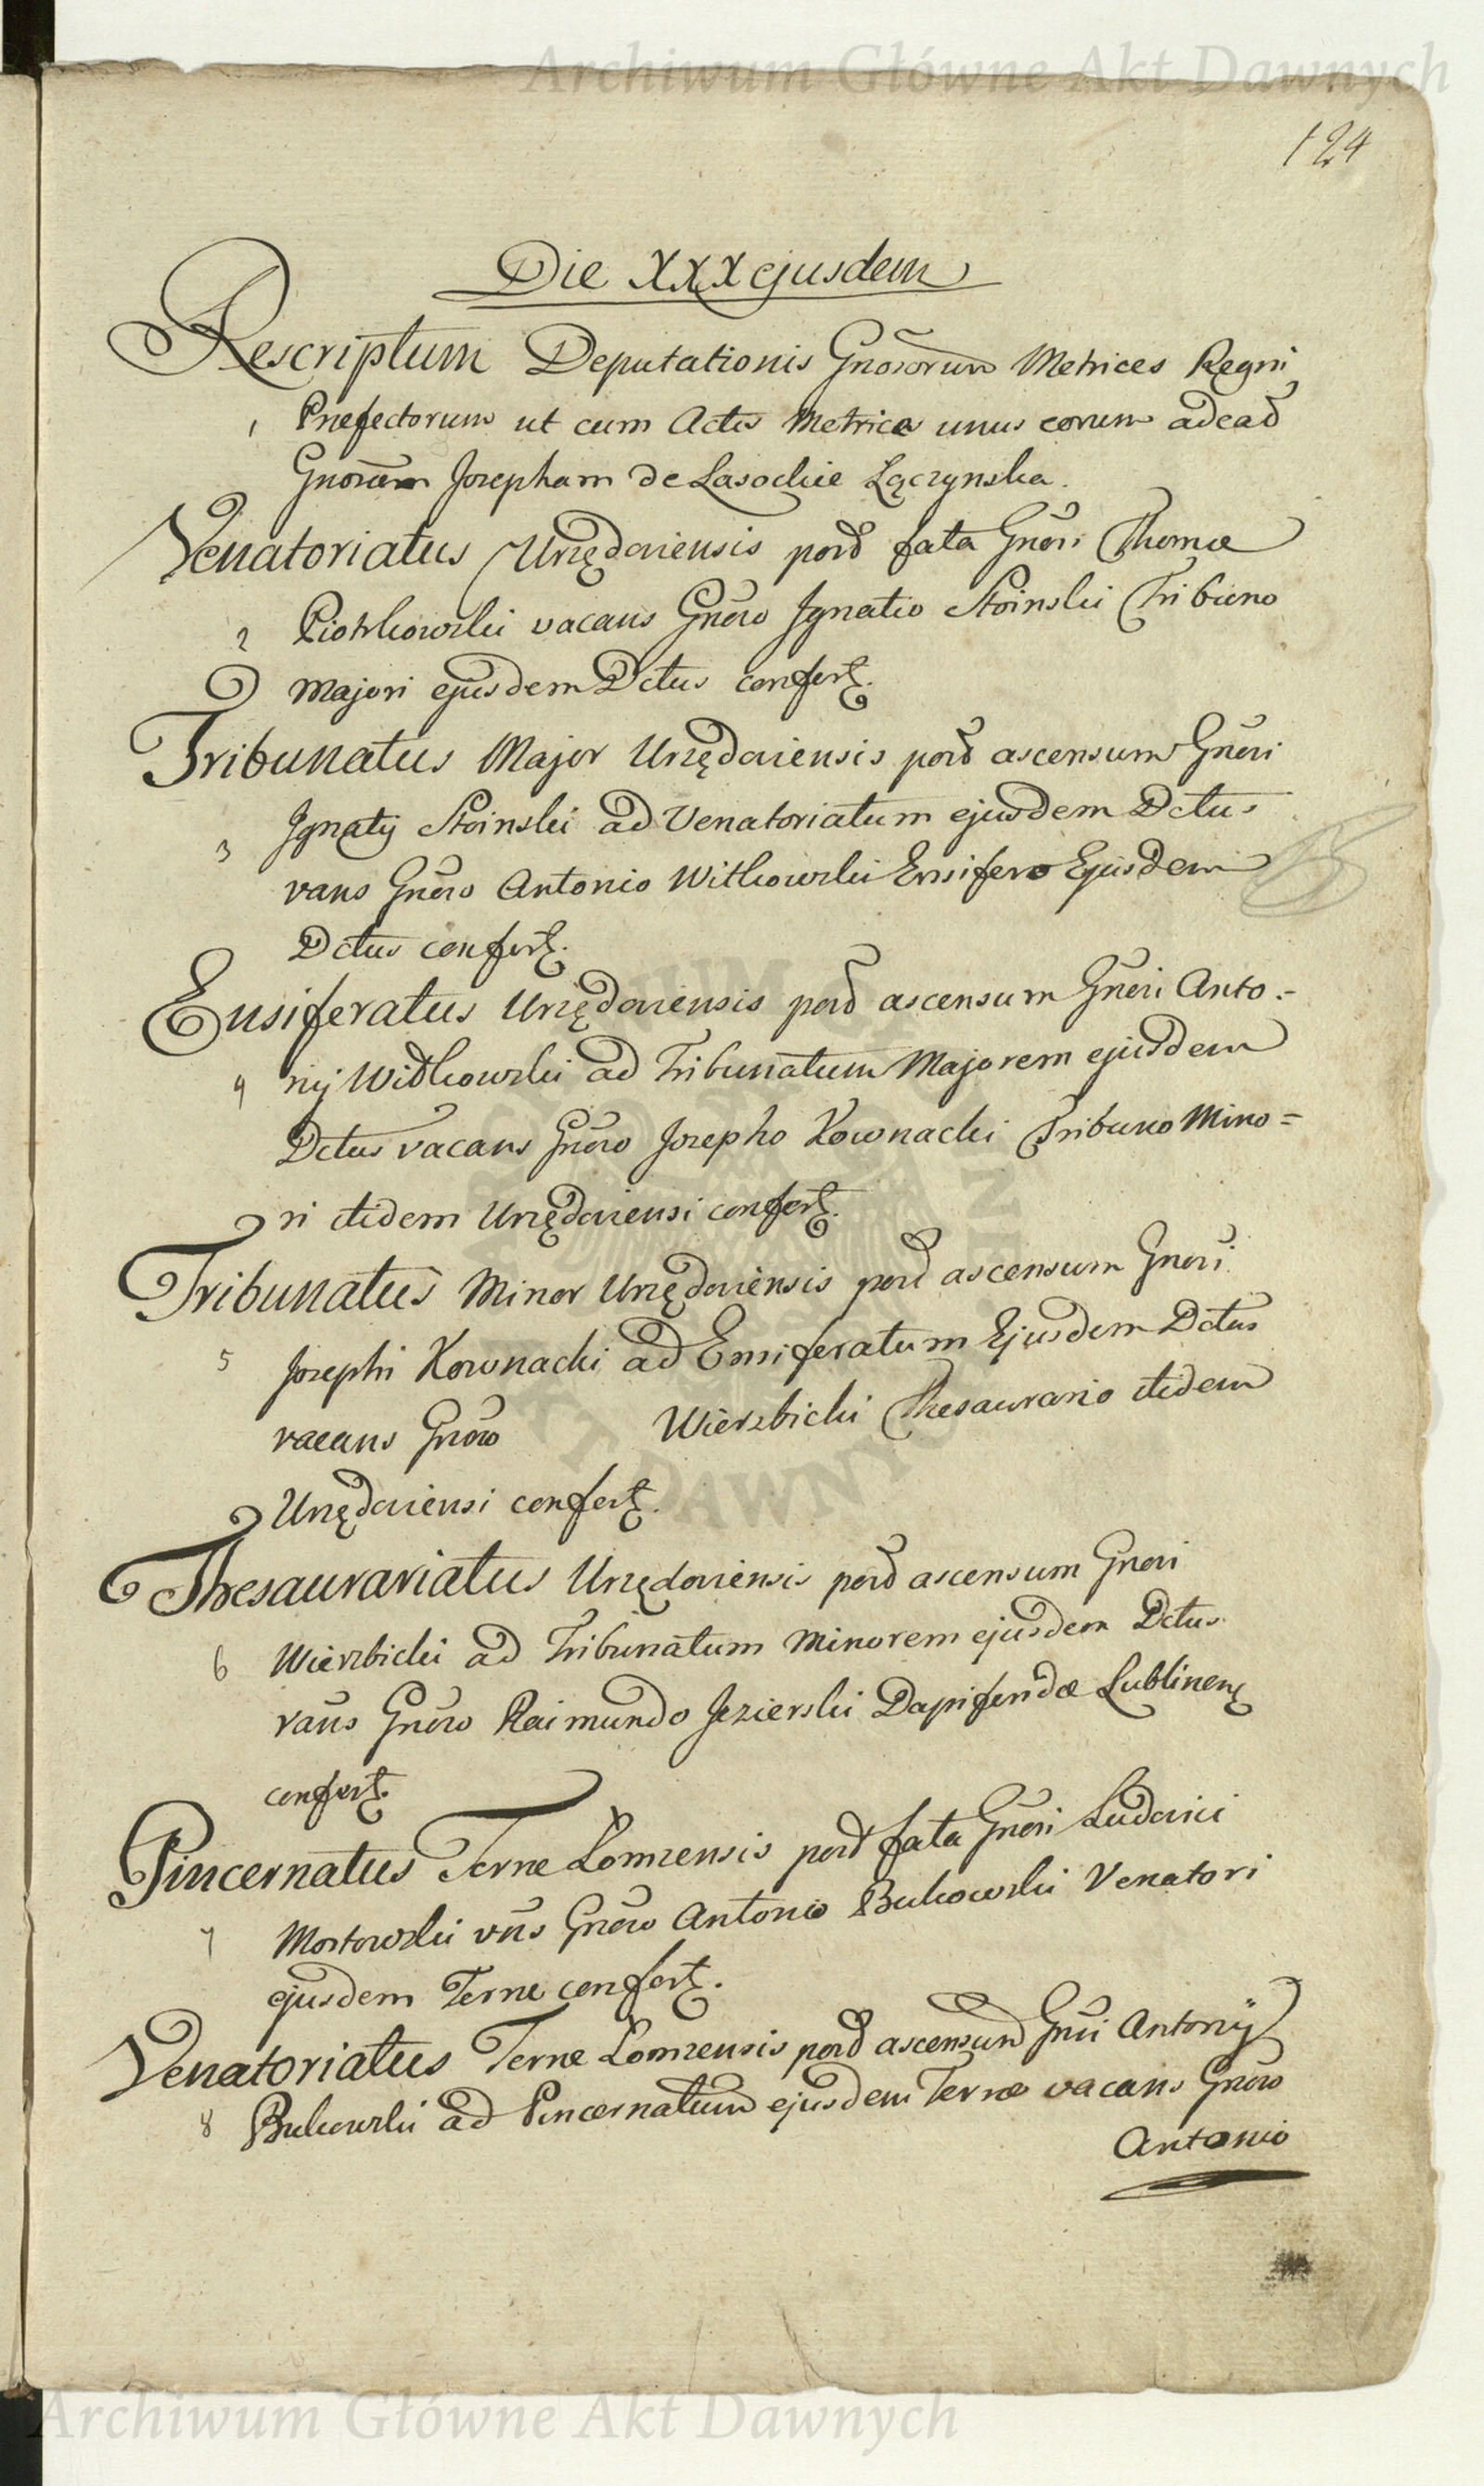 Archiwum Główne Akt Dawnych
124
Die XXX ejusdem
Rescriptum Deputationis Gnosorum Metrices Regni
1 Praefectorum ut cum Actis Metrices unus eorum ad ead
Gnosam Jozepham de Lasockie Łączynska.
Venatoriatus Urzędoviensis post fata Gnosi Thomae
2 Piotrkowski vacans Gnoso Ignatio Stoinski Tribuno
Majori ejusdem Dctus confert.
Tribunatus Major Urzędoviensis post ascensum Gnosi
3 Ignatij Stoinski ad Venatoriatum ejusdem Dctus
vans Gnoso Antonio Witkowski Ensifero Ejusdem
Dctus confert.
Ensiferatus Urzędoviensis post ascensum Gnosi Anto-
4 nij Witkowski ad Tribunatum Majorem ejusdem
Dctus vacans Gnoso Jozepho Kownacki Tribuno Mino=
ri itidem Urzędoviensi confert.
Tribunatus Minor Urzędoviensis post ascensum Gnosi
5 Jozephi Kownacki ad Ensiferatum Ejusdem Dctus
vacans Gnoso Wierzbicki Thesaurario itidem
Urzędoviensi confert.
Thesaurariatus Urzędoviensis post ascensum Gnosi
6 Wierzbicki ad Tribunatum Minorem ejusdem Dctus
vans Gnoso Raimundo Jezierski Dapiferidae Lublinen
confert.
Pincernatus Terrae Lomzensis post fata Gnosi Ludovici
7 Mostowski vns Gnoso Antonio Bukowski Venatori
ejusdem Terrae confert.
Venatoriatus Terrae Lomzensis post ascensum Gnsi Antonij
8 Bukowski ad Pincernatum ejusdem Terrae vacans Gnoso
Antonio
Archiwum Główne Akt Dawnych